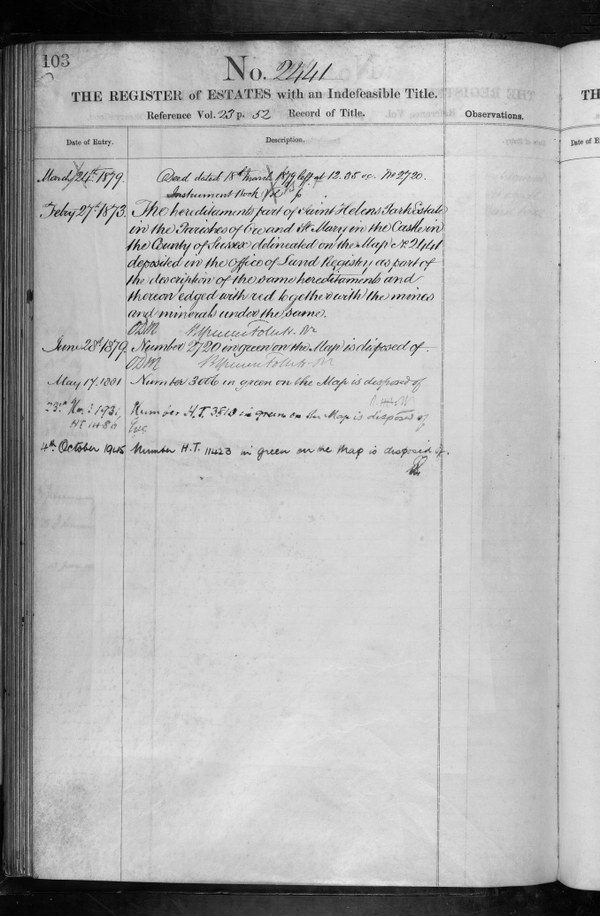 103
No. 2441
THE REGISTER of ESTATES with an Indefeasible Title.
Reference Vol. 23 p. 52 Record of Title.
Observations.
Date of Entry.
Description.
March 24th 1879.
Deed dated 18th March 1879 left at 12.05 No 2720.
Instrument Book Vol p
Febry 27th 1873.
The hereditaments part of Saint Helens Park Estate
in the Parishes of Ore and St Mary in the Castle in
the County of Sussex delineated on the Map No 2441
deposited in the Office of Land Registry as part of
the description of the same hereditaments and
thereon edged with red together with the mines
and minerals under the same.
June 28th 1879.
Number 2720 in green on the Map is disposed of.
May 17. 1881
Number 3006 in green on the Map is disposed of
23rd
Number H.T. 3518 in green on the Map is disposed of
4th October 1945
Number H.T. 11423 in green on the Map is disposed of.
TH
Date of E